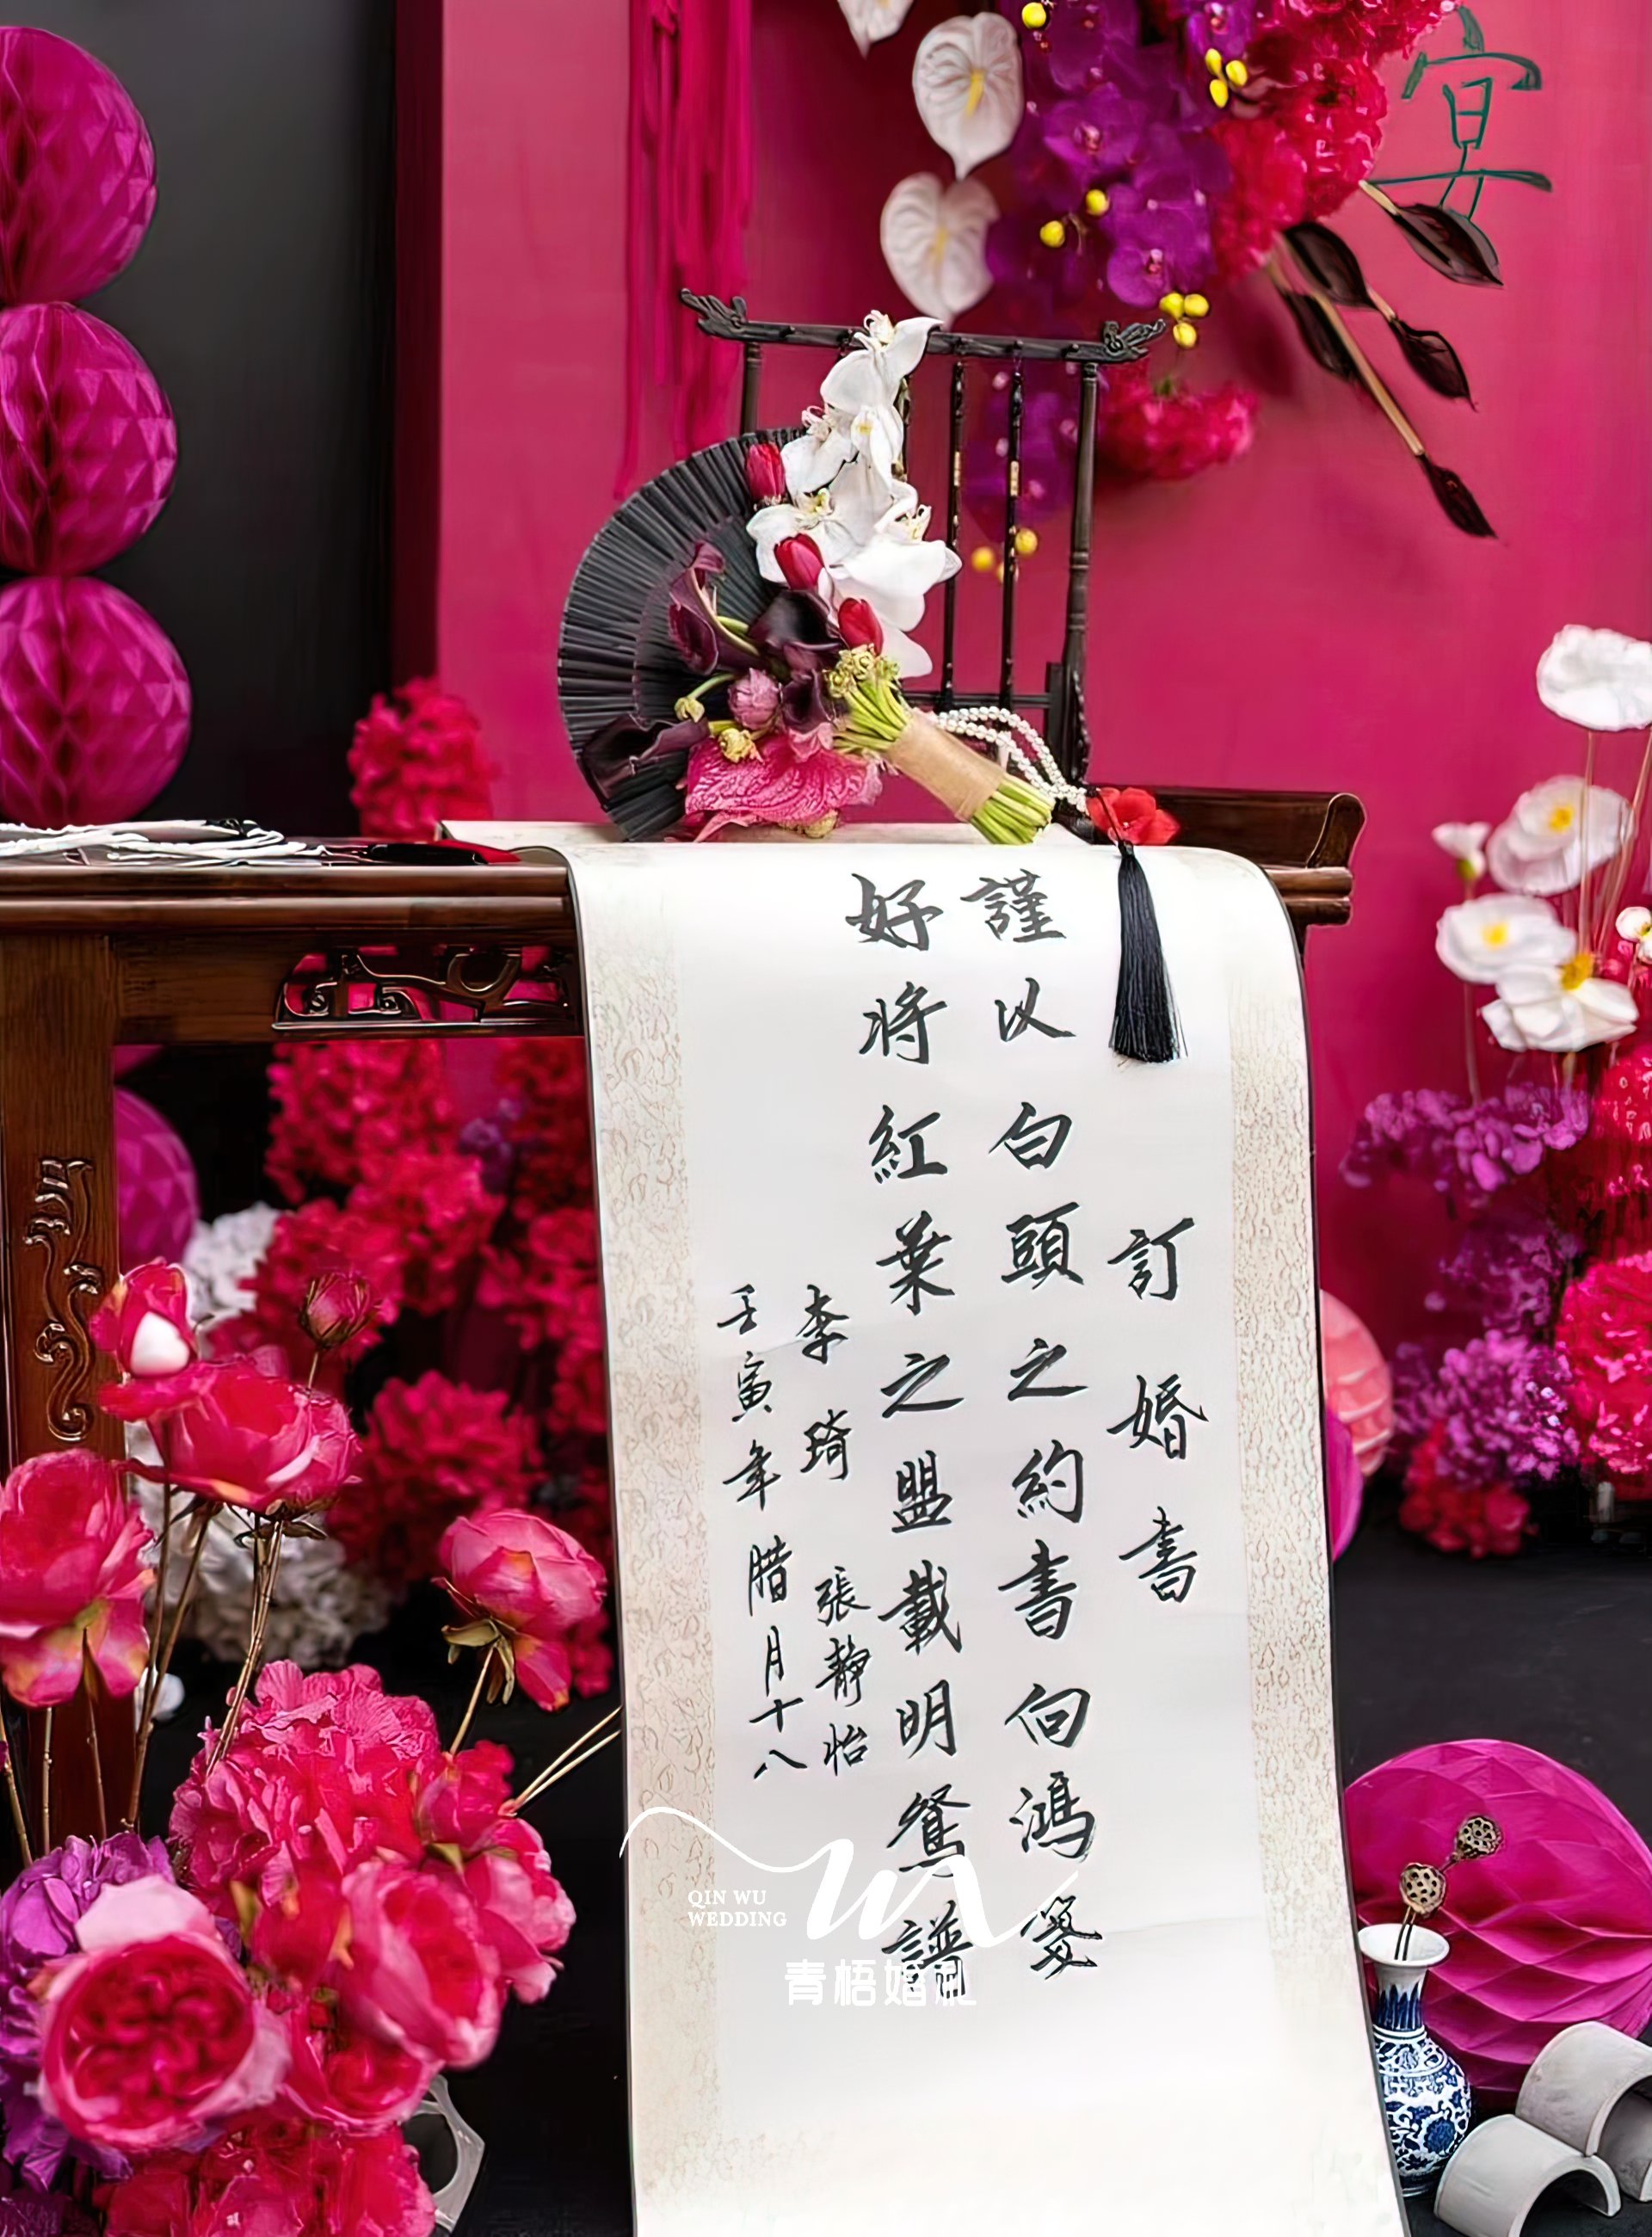 宴
訂婚書
謹以白頭之約書向鴻箋
好將紅葉之盟載明鴛譜
李琦 張靜怡
壬寅年腊月十八
QIN WU
WEDDING
青梧婚礼